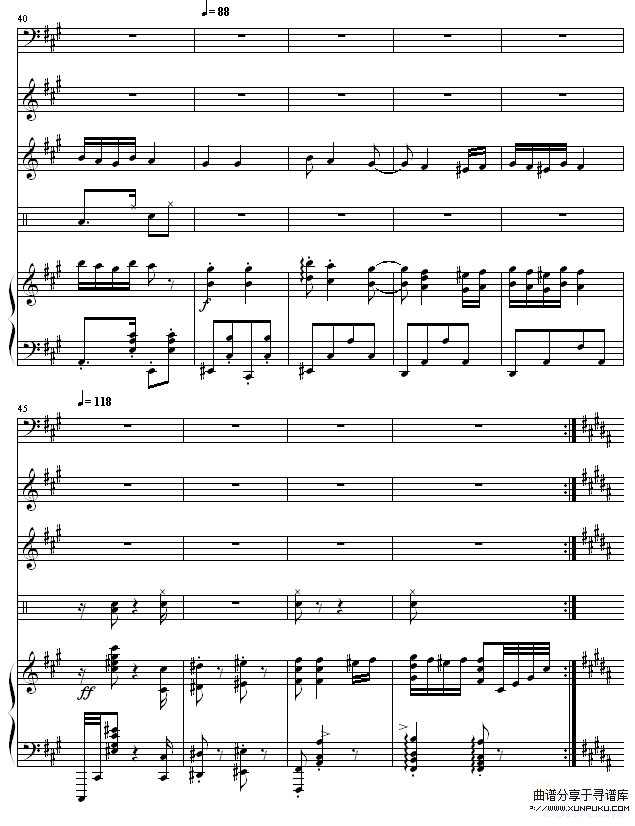 40
♩= 88
f
45
♩= 118
ff
曲谱分享于寻谱库
WWW.XUNPUKU.COM